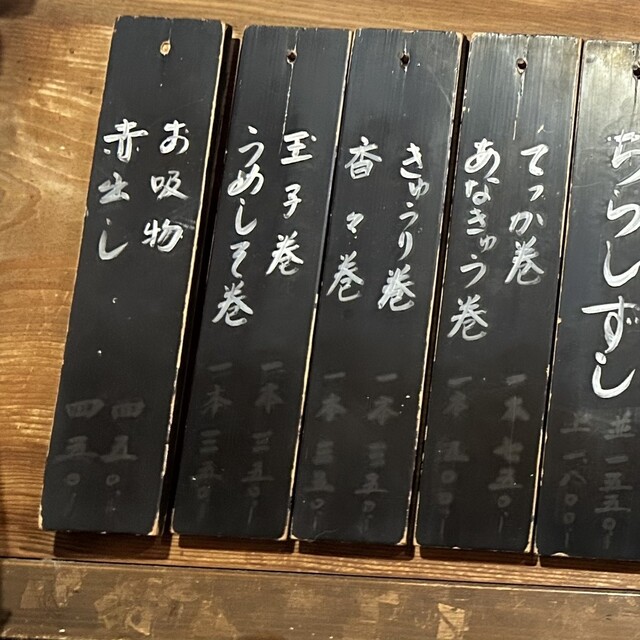 ちらしずし
並 一五五〇-
上 一八〇〇-
てっか巻 一本 七五〇-
あなきゅう巻 一本 五〇〇-
きゅうり巻 一本 三五〇-
香々巻 一本 三五〇-
玉子巻 一本 三五〇-
うめしそ巻 一本 三五〇-
お吸物 四五〇-
赤出し 四五〇-